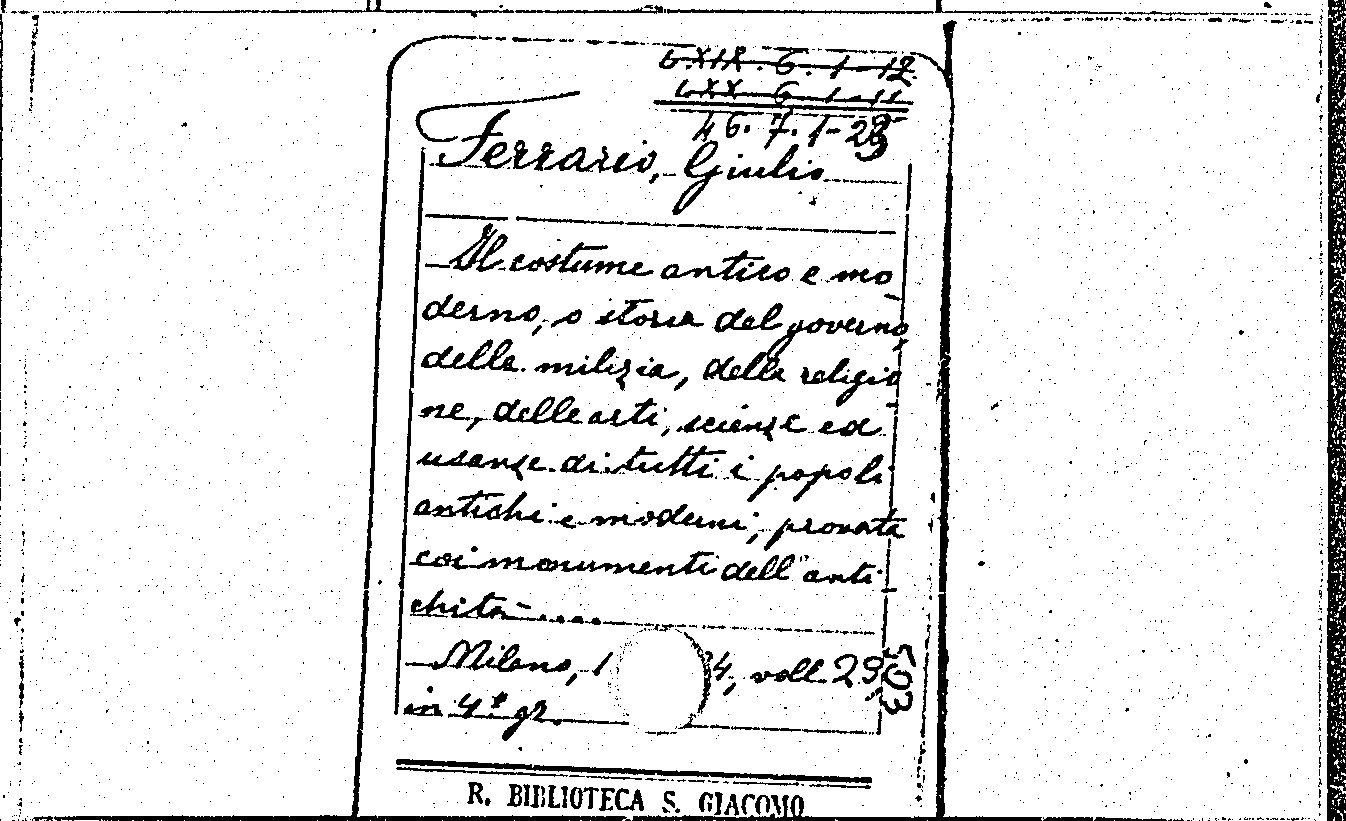 LXIX. 6. 1-12
LXX 6 1-11
46. 7. 1-29
Ferrario, Giulio
Il costume antico e mo_
derno, o storia del governo,
della milizia, della religio_
ne, delle arti, scienze ed
usanze di tutti i popoli
antichi e moderni, provata
coi monumenti dell'anti_
chità ....
Milano, 1 4, voll. 29,
in 4° gr.
503
R. BIBLIOTECA S. GIACOMO